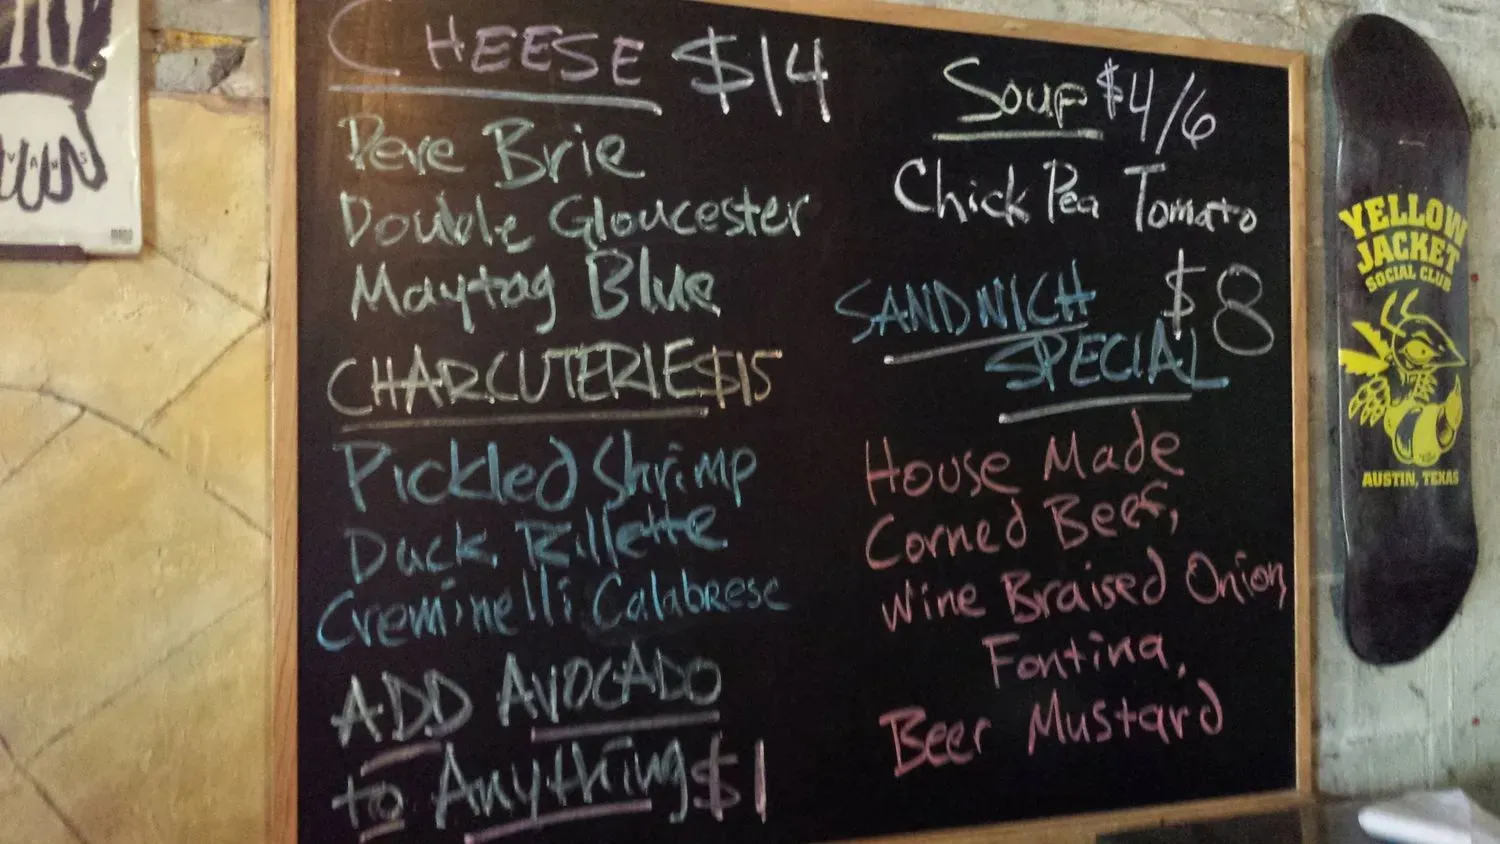 CHEESE $14
Pere Brie
Double Gloucester
Maytag Blue
CHARCUTERIE $15
Pickled Shrimp
Duck Rillette
Creminelli Calabrese
ADD AVOCADO
to Anything $1
Soup $4/6
Chick Pea Tomato
SANDWICH $8
SPECIAL
House Made
Corned Beef,
Wine Braised Onion,
Fontina,
Beer Mustard
YELLOW
JACKET
SOCIAL CLUB
AUSTIN, TEXAS
VANS